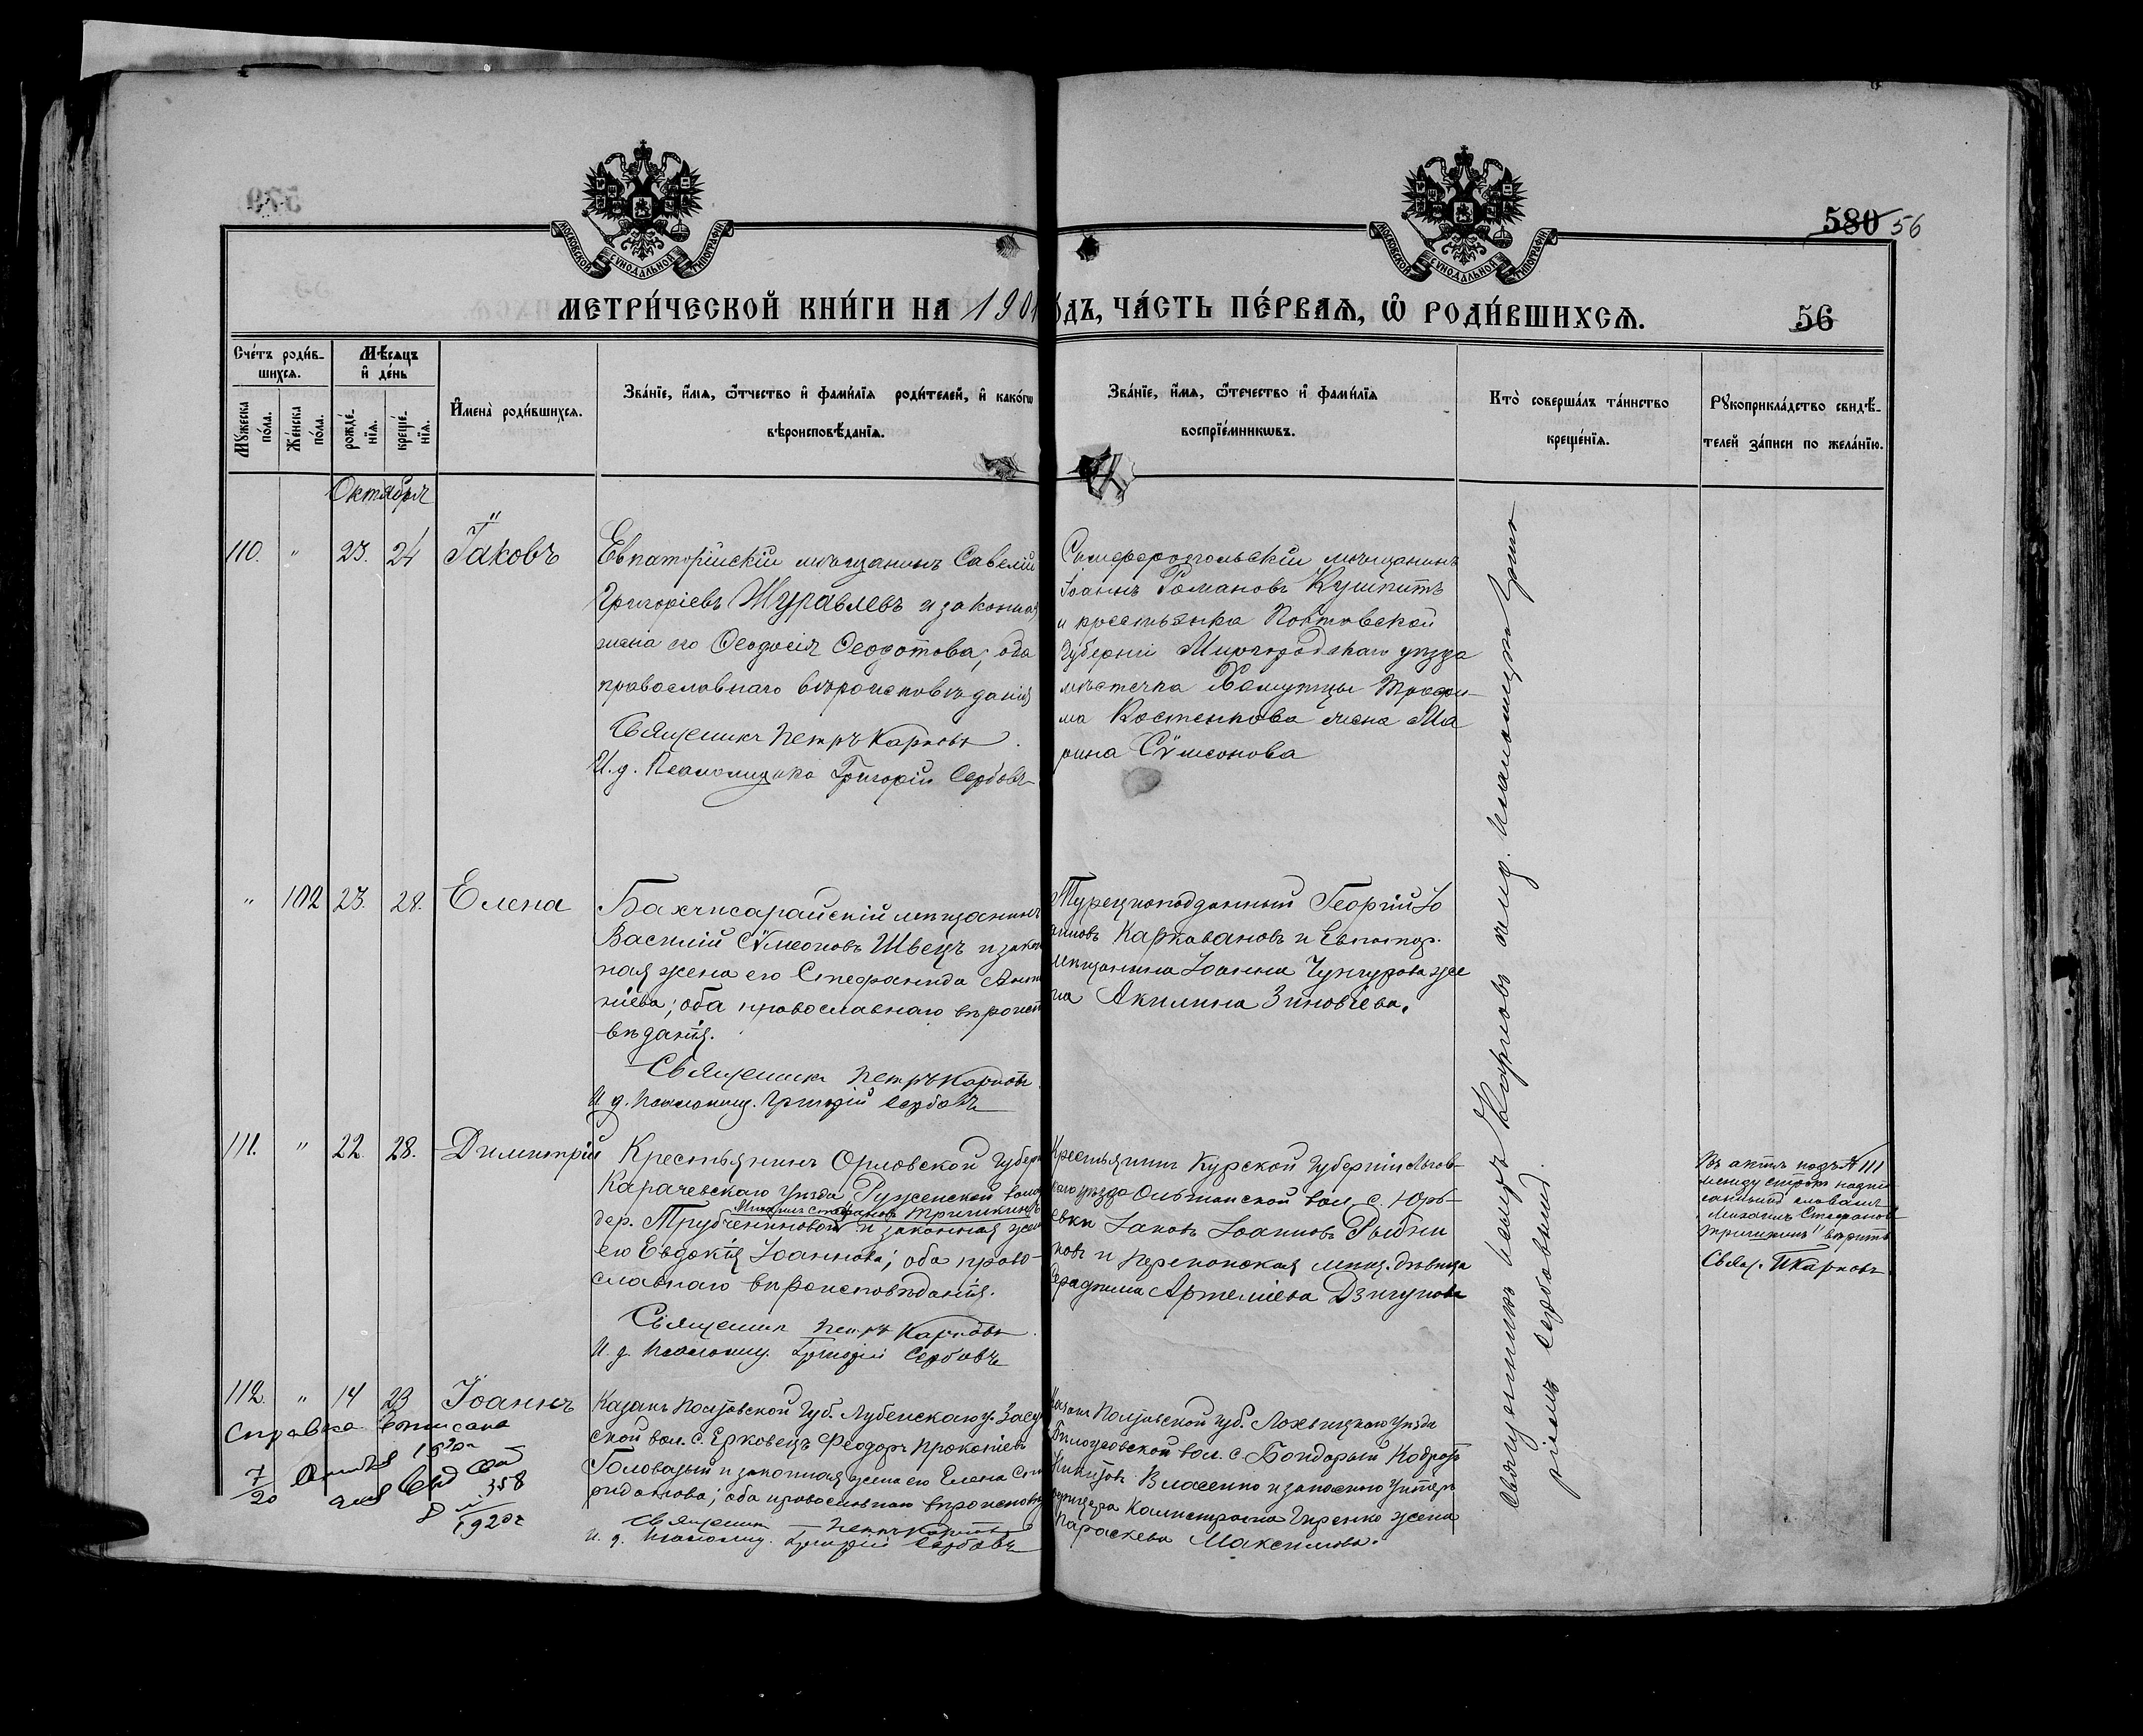 580 56
МЕТРИ́ЧЕСКОЙ КНИ́ГИ НА 1901
О́ДЪ, ЧА́СТЬ ПЕ́РВАѦ, Ѡ҆ РОДИ́ВШИХСѦ.
56
Сче́тъ роди́вшихсѧ.
Мꙋ́жеска по́ла.
Же́нска по́ла.
Мѣ́сѧцъ и҆ де́нь
рожде́нїѧ.
креще́нїѧ.
И҆мена̀ роди́вшихсѧ.
Зва́нїе, и҆́мѧ, ѻ҆́тчество и҆ фами́лїѧ роди́телей, и҆ како́гѡ
вѣроисповѣ́данїѧ.
Зва́нїе, и҆́мѧ, ѻ҆́течество и҆ фами́лїѧ
воспрїе́мникѡвъ.
Кто̀ соверша́лъ та́инство
креще́нїѧ.
Рꙋкоприкла́дство свидѣ́-
телей за́писи по жела́нїю.
Октября
110. " 23. 24 Іаковъ
Евпаторійскій мѣщанинъ Савелій
Григоріевъ Журавлевъ и законная
жена его Ѳеодосія Ѳеодотова; оба
православнаго вѣроисповѣданія
Священникъ Петръ Карповъ
И. д. Псаломщика Григорій Сербовъ
Симферопольскій мѣщанинъ
Іоаннъ Романовъ Кушпитъ
и крестьянка Полтовской
Губерніи Миргородскаго уѣзда
мѣстечка Хомутцы Трофи-
ма Костенкова жена Ма
рина Сѵмеонова
" 102 23. 28. Елена
Бахчисарайскій мѣщанинъ
Василій Сѵмеоновъ Швецъ и закон
ная жена его Стефанида Анто
ніева; оба православнаго вѣроиспо
вѣданія.
Священникъ Петръ Карповъ
И д. Псаломщ. Григорій Сербовъ
Турецкоподданный Георгій Іо
анновъ Каркавановъ и Евпатор.
мѣщанина Іоанна Чунгурова же
на Акилина Зиновіева.
111. " 22. 28. Димитрій
Крестьянинъ Орловской Губерн
Карачевскаго уѣзда Руженской волос
Михаилъ Стефановъ Тришкинъ
дер. Трубченниковой и законная жена
его Евдокія Іоаннова; оба право-
славнаго вѣроисповѣданія.
Священникъ Петръ Карповъ
И. д. Псаломщ. Григорій Сербовъ
Крестьянинъ Курской Губерніи Льгов-
скаго уѣзда Ольшанской вол. с. Юрь-
евки Іаковъ Іоанновъ Рыбни
ковъ и Перекопская мѣщ. дѣвица
Серафима Артеміева Дзигунова
Въ актѣ подъ № 111
между строк надпи
санному словами
"Михаилъ Стефановъ
Тришкинъ" вѣрить
Свящ. П Карповъ
112. " 14 23 Іоаннъ
Казакъ Полтовской Губ. Лубенскаго у. Засу
ской вол. с. Ерковецъ Ѳеодоръ Прокопіевъ
Головатый и законная жена его Елена Спи
ридонова; оба православнаго вѣроисповѣд
Священникъ Петръ Карповъ
И. д. Псаломщ. Григорій Сербовъ
Казакъ Полтовской Губ. Лохвицкаго уѣзда
Бѣлоусовской вол. с. Бондарый Кодратъ
Никитовъ Власенко и запаснаго Унтеръ
офицера Каллистрата Гиренко жена
Параскева Максимова.
Справка выписана
7/20 1920г
358
8 1920г
Священникъ Петръ Карповъ съ и. д. псаломщика Григо
ріемъ Сербовымъ.